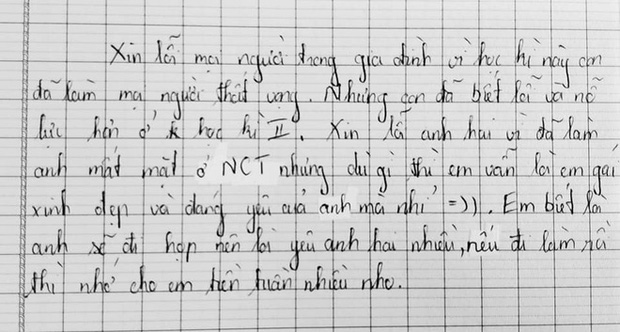 Xin lỗi mọi người trong gia đình vì học kì này con
đã làm mọi người thất vọng. Nhưng con đã biết lỗi và nỗ
lực hơn ở k học kì II. Xin lỗi anh hai vì đã làm
anh mất mặt ở NCT nhưng dù gì thì em vẫn là em gái
xinh đẹp và đáng yêu của anh mà nhỉ =)). Em biết là
anh sẽ đi họp nên lời yêu anh hai nhiều, nếu đi làm
thì nhớ cho em tiền tuần nhiều nho.